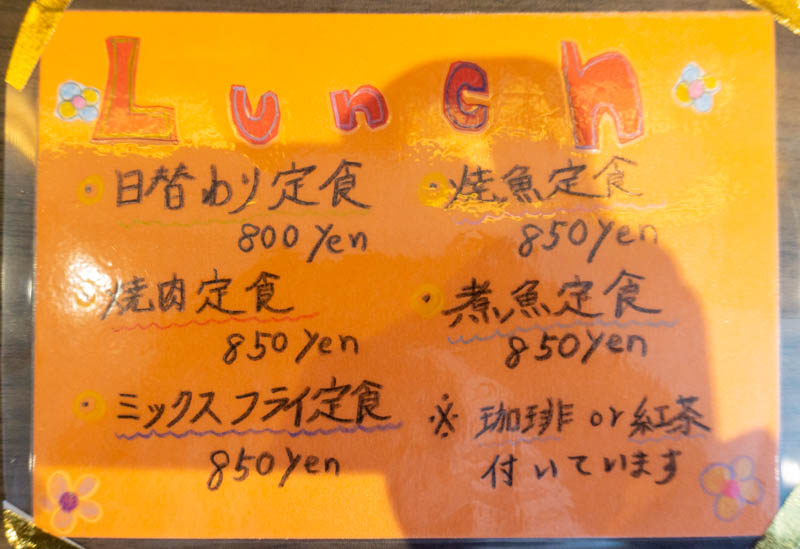 Lunch
日替わり定食
800 yen
焼肉定食
850 yen
ミックスフライ定食
850 yen
焼魚定食
850 yen
煮魚定食
850 yen
※ 珈琲 or 紅茶
付いています